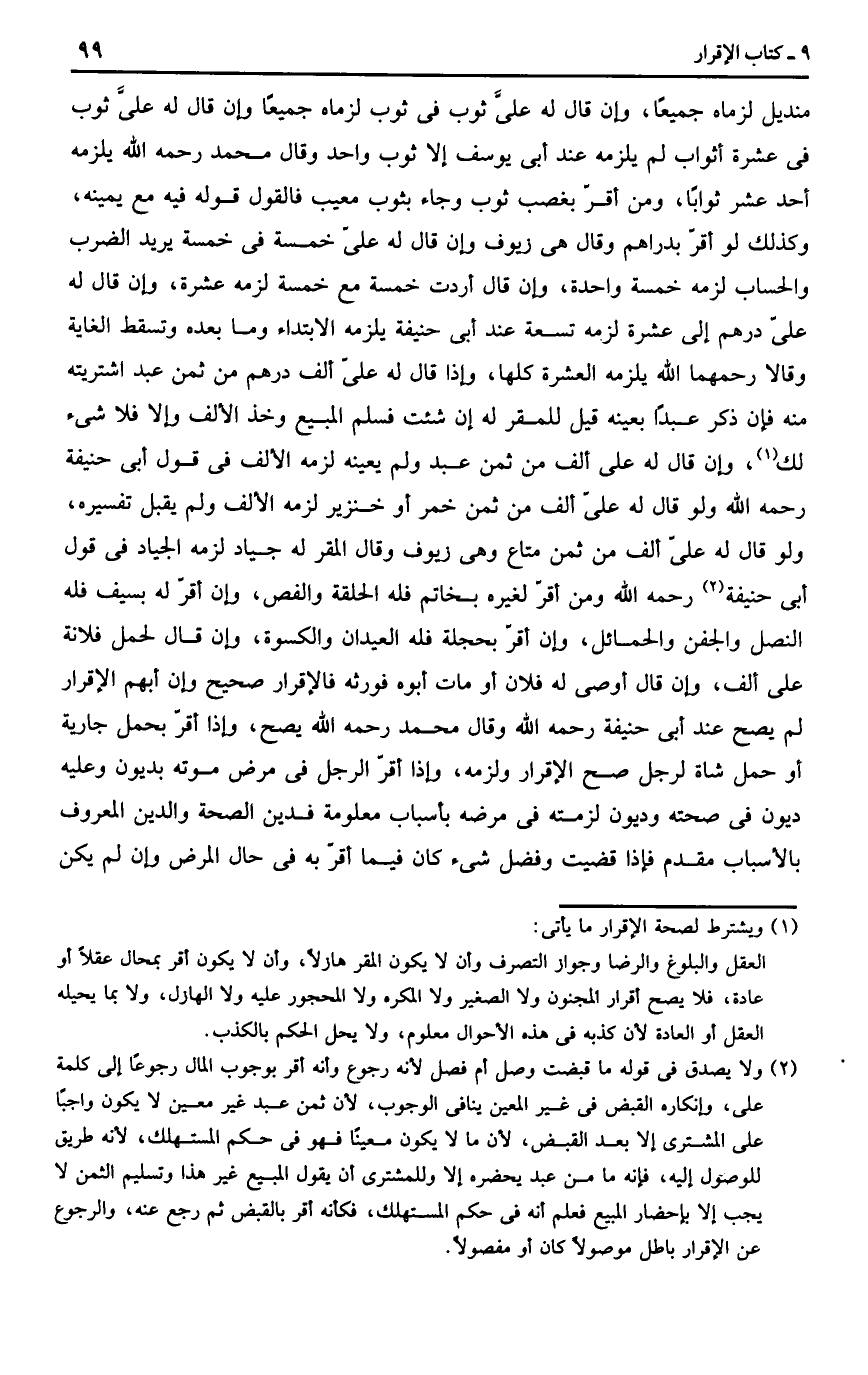 ٩ ـ كتاب الإقرار ٩٩
منديل لزماه جميعًا، وإن قال له علىَّ ثوب فى ثوب لزماه جميعًا وإن قال له علىَّ ثوب
فى عشرة أثواب لم يلزمه عند أبى يوسف إلا ثوب واحد وقال محمد رحمه الله يلزمه
أحد عشر ثوابًا، ومن أقرّ بغصب ثوب وجاء بثوب معيب فالقول قوله فيه مع يمينه،
وكذلك لو أقرّ بدراهم وقال هى زيوف وإن قال له علىّ خمسة فى خمسة يريد الضرب
والحساب لزمه خمسة واحدة، وإن قال أردت خمسة مع خمسة لزمه عشرة، وإن قال له
علىّ درهم إلى عشرة لزمه تسعة عند أبى حنيفة يلزمه الابتداء وما بعده وتسقط الغاية
وقالا رحمهما الله يلزمه العشرة كلها، وإذا قال له علىّ ألف درهم من ثمن عبد اشتريته
منه فإن ذكر عبدًا بعينه قيل للمقر له إن شئت فسلم المبيع وخذ الألف وإلا فلا شىء
لك(١)، وإن قال له على ألف من ثمن عبد ولم يعينه لزمه الألف فى قول أبى حنيفة
رحمه الله ولو قال له علىّ ألف من ثمن خمر أو خنزير لزمه الألف ولم يقبل تفسيره،
ولو قال له علىّ ألف من ثمن متاع وهى زيوف وقال المقر له جياد لزمه الجياد فى قول
أبى حنيفة(٢) رحمه الله ومن أقرّ لغيره بخاتم فله الحلقة والفص، وإن أقرّ له بسيف فله
النصل والجفن والحمائل، وإن أقرّ بحجلة فله العيدان والكسوة، وإن قال لحمل فلانة
على ألف، وإن قال أوصى له فلان أو مات أبوه فورثه فالإقرار صحيح وإن أبهم الإقرار
لم يصح عند أبى حنيفة رحمه الله وقال محمد رحمه الله يصح، وإذا أقرّ بحمل جارية
أو حمل شاة لرجل صح الإقرار ولزمه، وإذا أقرّ الرجل فى مرض موته بديون وعليه
ديون فى صحته وديون لزمته فى مرضه بأسباب معلومة فدين الصحة والدين المعروف
بالأسباب مقدم فإذا قضيت وفضل شىء كان فيما أقرّ به فى حال المرض وإن لم يكن
(١) ويشترط لصحة الإقرار ما يأتى:
العقل والبلوغ والرضا وجواز التصرف وأن لا يكون المقر هازلاً، وأن لا يكون أقر بمحال عقلاً أو
عادة، فلا يصح أقرار المجنون ولا الصغير ولا المكره ولا المحجور عليه ولا الهازل، ولا بما يحيله
العقل أو العادة لأن كذبه فى هذه الأحوال معلوم، ولا يحل الحكم بالكذب.
(٢) ولا يصدق فى قوله ما قبضت وصل أم فصل لأنه رجوع وأنه أقر بوجوب المال رجوعًا إلى كلمة
على، وإنكاره القبض فى غير المعين ينافى الوجوب، لأن ثمن عبد غير معين لا يكون واجبًا
على المشترى إلا بعد القبض، لأن ما لا يكون معينًا فهو فى حكم المستهلك، لأنه طريق
للوصول إليه، فإنه ما من عبد يحضره إلا وللمشترى أن يقول المبيع غير هذا وتسليم الثمن لا
يجب إلا بإحضار المبيع فعلم أنه فى حكم المستهلك، فكأنه أقر بالقبض ثم رجع عنه، والرجوع
عن الإقرار باطل موصولاً كان أو مفصولاً.